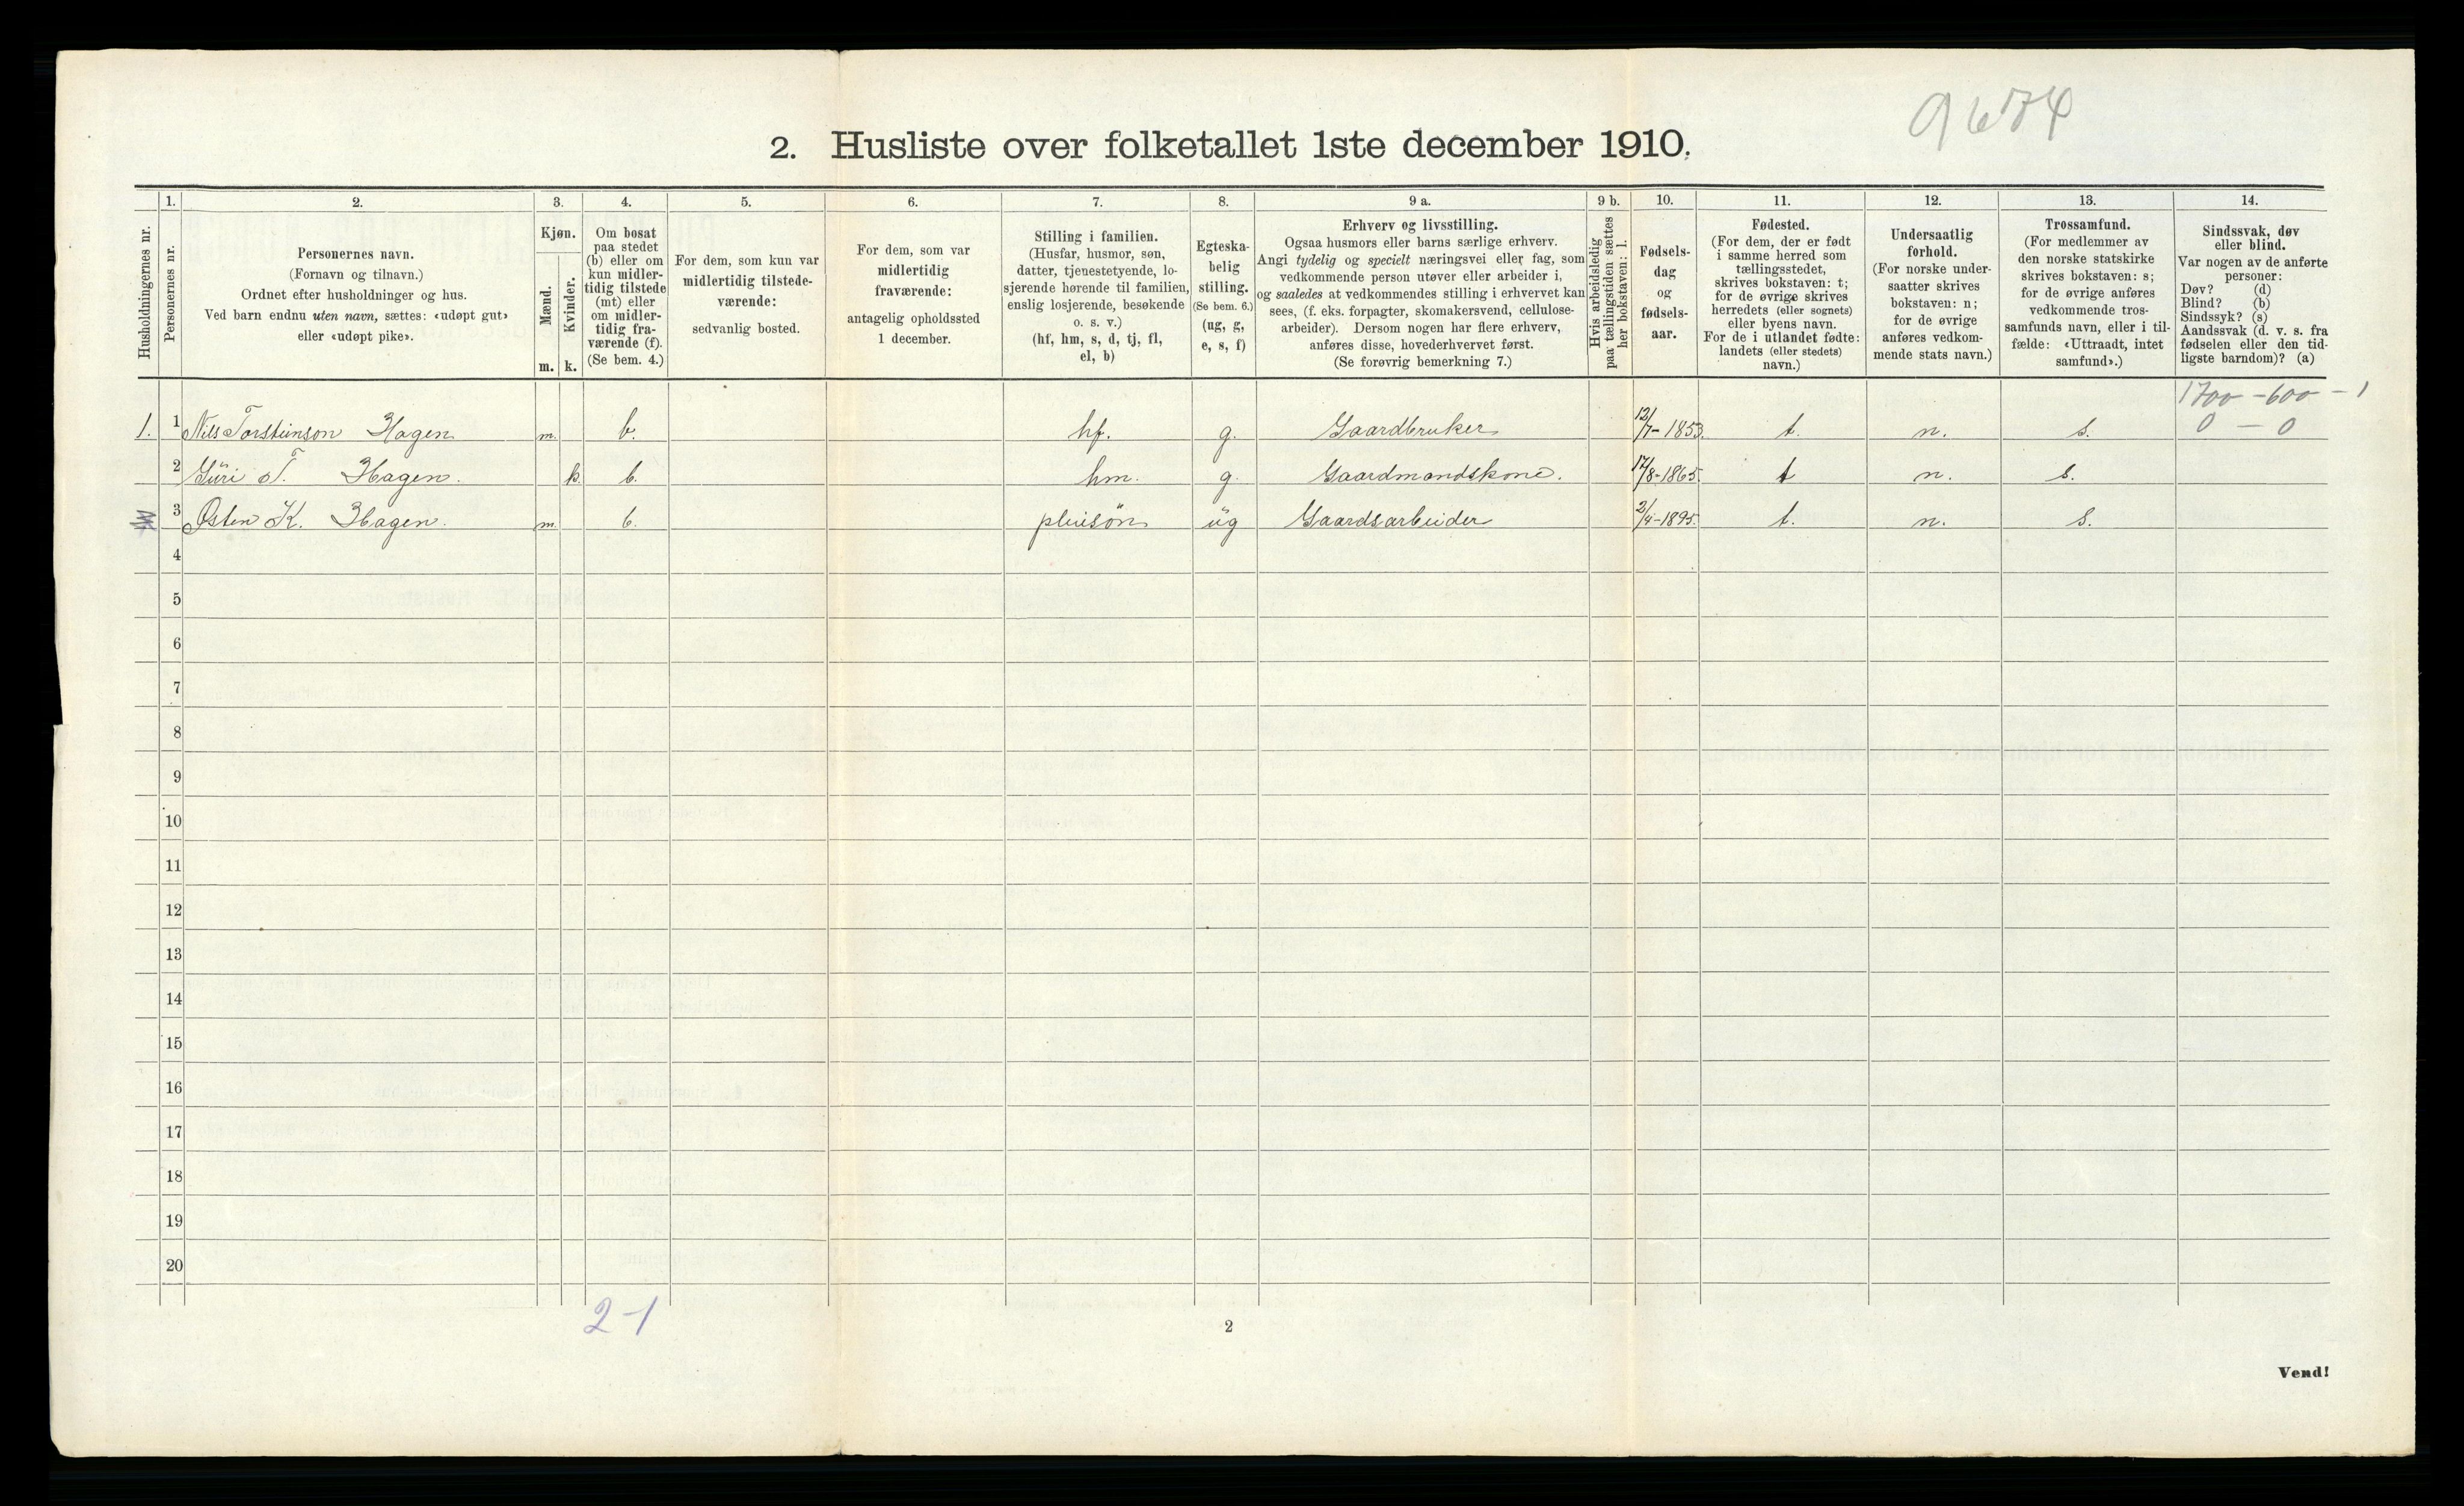 9674
2. Husliste over folketallet 1ste december 1910.
Husholdningernes nr.
1. Personernes nr.
2. Personernes navn. (Fornavn og tilnavn.) Ordnet efter husholdninger og hus. Ved barn endnu uten navn, sættes: «udøpt gut» eller «udøpt pike».
3. Kjøn. Mænd. m. Kvinder. k.
4. Om bosat paa stedet (b) eller om kun midler-tidig tilstede (mt) eller om midler-tidig fra-værende (f). (Se bem. 4.)
5. For dem, som kun var midlertidig tilstede-værende: sedvanlig bosted.
6. For dem, som var midlertidig fraværende: antagelig opholdssted 1 december.
7. Stilling i familien. (Husfar, husmor, søn, datter, tjenestetyende, lo-sjerende hørende til familien, enslig losjerende, besøkende o. s. v.) (hf, hm, s, d, tj, fl, el, b)
8. Egteska-belig stilling. (Se bem. 6.) (ug, g, e, s, f)
9 a. Erhverv og livsstilling. Ogsaa husmors eller barns særlige erhverv. Angi tydelig og specielt næringsvei eller fag, som vedkommende person utøver eller arbeider i, og saaledes at vedkommendes stilling i erhvervet kan sees, (f. eks. forpagter, skomakersvend, cellulose-arbeider). Dersom nogen har flere erhverv, anføres disse, hovederhvervet først. (Se forøvrig bemerkning 7.)
9 b. Hvis arbeidsledig paa tællingstiden sættes her bokstaven: l.
10. Fødsels-dag og fødsels-aar.
11. Fødested. (For dem, der er født i samme herred som tællingsstedet, skrives bokstaven: t; for de øvrige skrives herredets (eller sognets) eller byens navn. For de i utlandet fødte: landets (eller stedets) navn.)
12. Undersaatlig forhold. (For norske under-saatter skrives bokstaven: n; for de øvrige anføres vedkom-mende stats navn.)
13. Trossamfund. (For medlemmer av den norske statskirke skrives bokstaven: s; for de øvrige anføres vedkommende tros-samfunds navn, eller i til-fælde: «Uttraadt, intet samfund».)
14. Sindssvak, døv eller blind. Var nogen av de anførte personer: Døv? (d) Blind? (b) Sindssyk? (s) Aandssvak (d. v. s. fra fødselen eller den tid-ligste barndom)? (a)
1700 - 600 - 1
1. 1 Nils Torsteinson Hagen m. b. hf. g. Gaardbruker 12/7-1853. t. n. s. 0 - 0
2 Guri T. Hagen. k. b. hm. g. Gaardmandskone. 17/8-1865. t n. s.
3 Østen K. Hagen. m. b. pleisøn ug Gaardsarbeider 2/4-1895. t. n. s.
4
5
6
7
8
9
10
11
12
13
14
15
16
17
18
19
20
2-1
2
Vend!